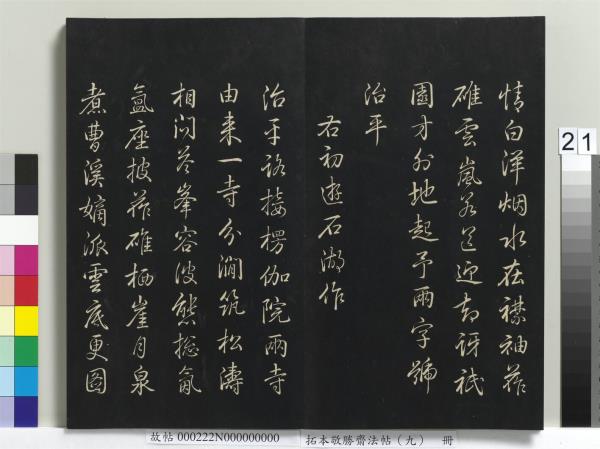 情白洋烟水在襟袖蘿
碓雲嵐若送迎却訝祇
園才外地起予兩字號
治平
右初遊石湖作
治平路接楞伽院兩寺
由来一寺分澗筑松濤
相问答峯容波態挹氤
氳座披蘿碓栖崖月泉
煮曹溪嫡派雲底更園
21
故帖 000222N000000000
拓本敬勝齋法帖（九） 冊